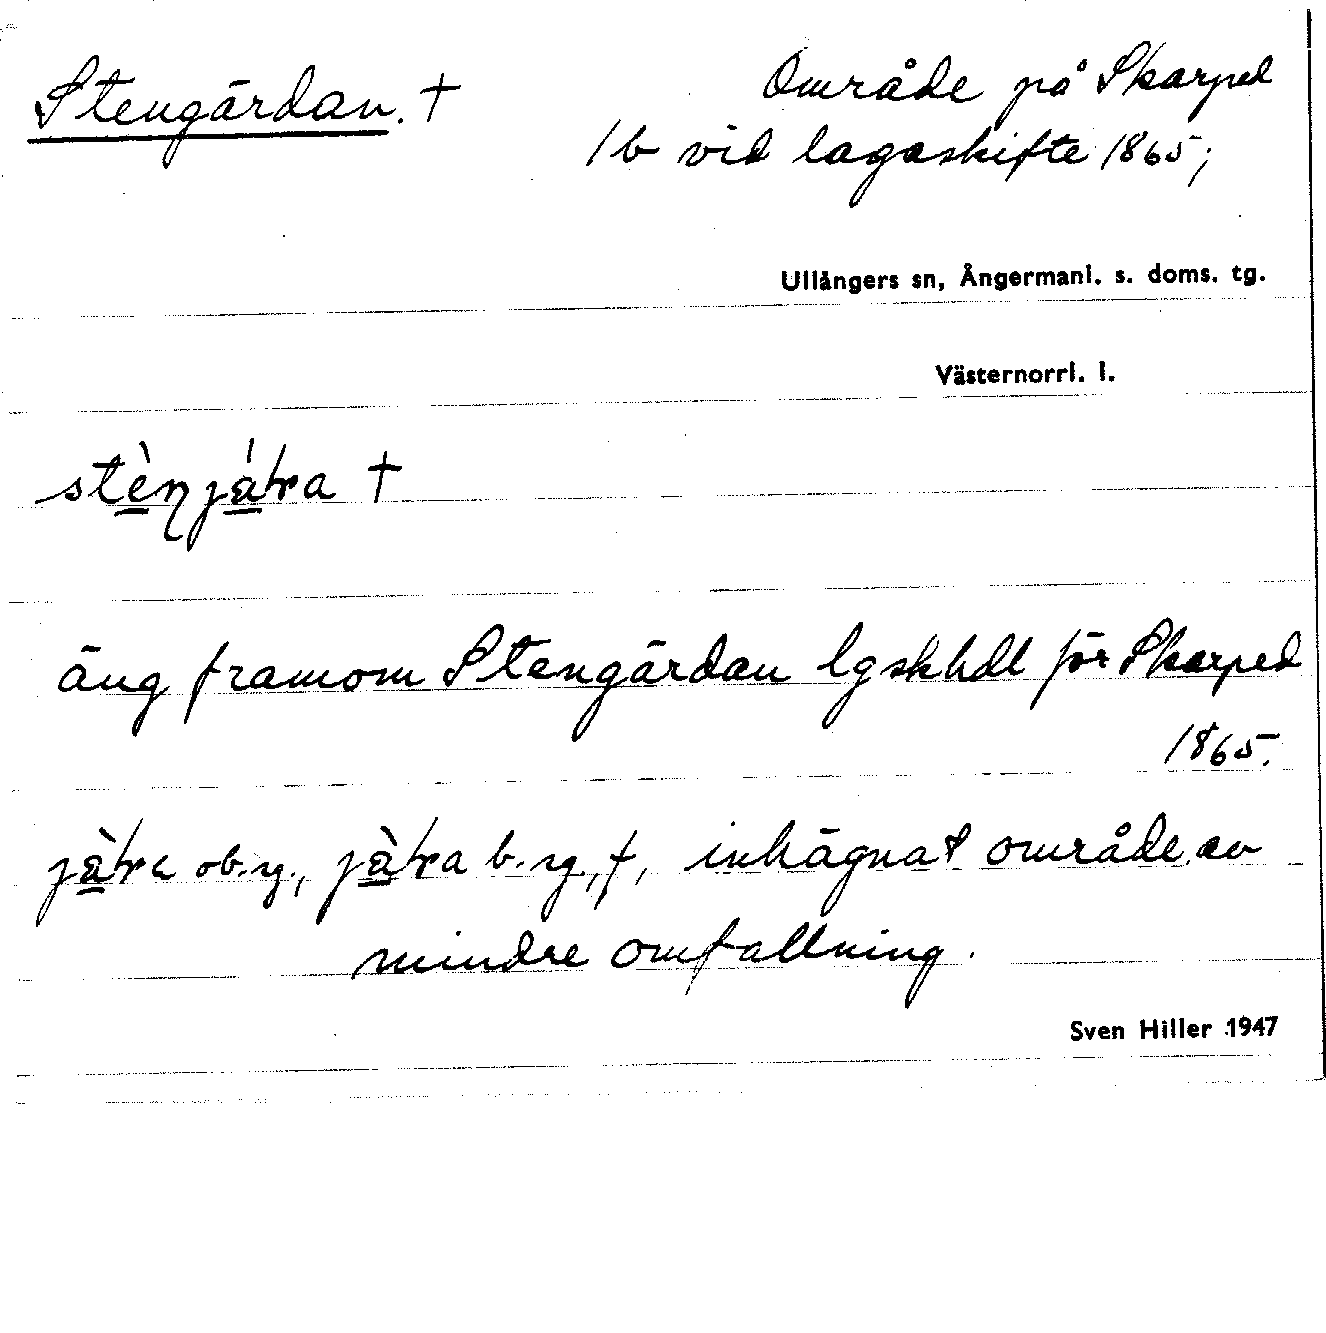 Stengärdan. †
Område på Skarped
1b vid lagaskifte 1865;
Ullångers sn, Ångermanl. s. doms. tg.
Västernorrl. l.
†
äng framom Stengärdan lgskhdl för Skarped
1865.
ob. sg., b. sg., †, inhägnat område av
mindre omfattning.
Sven Hiller 1947